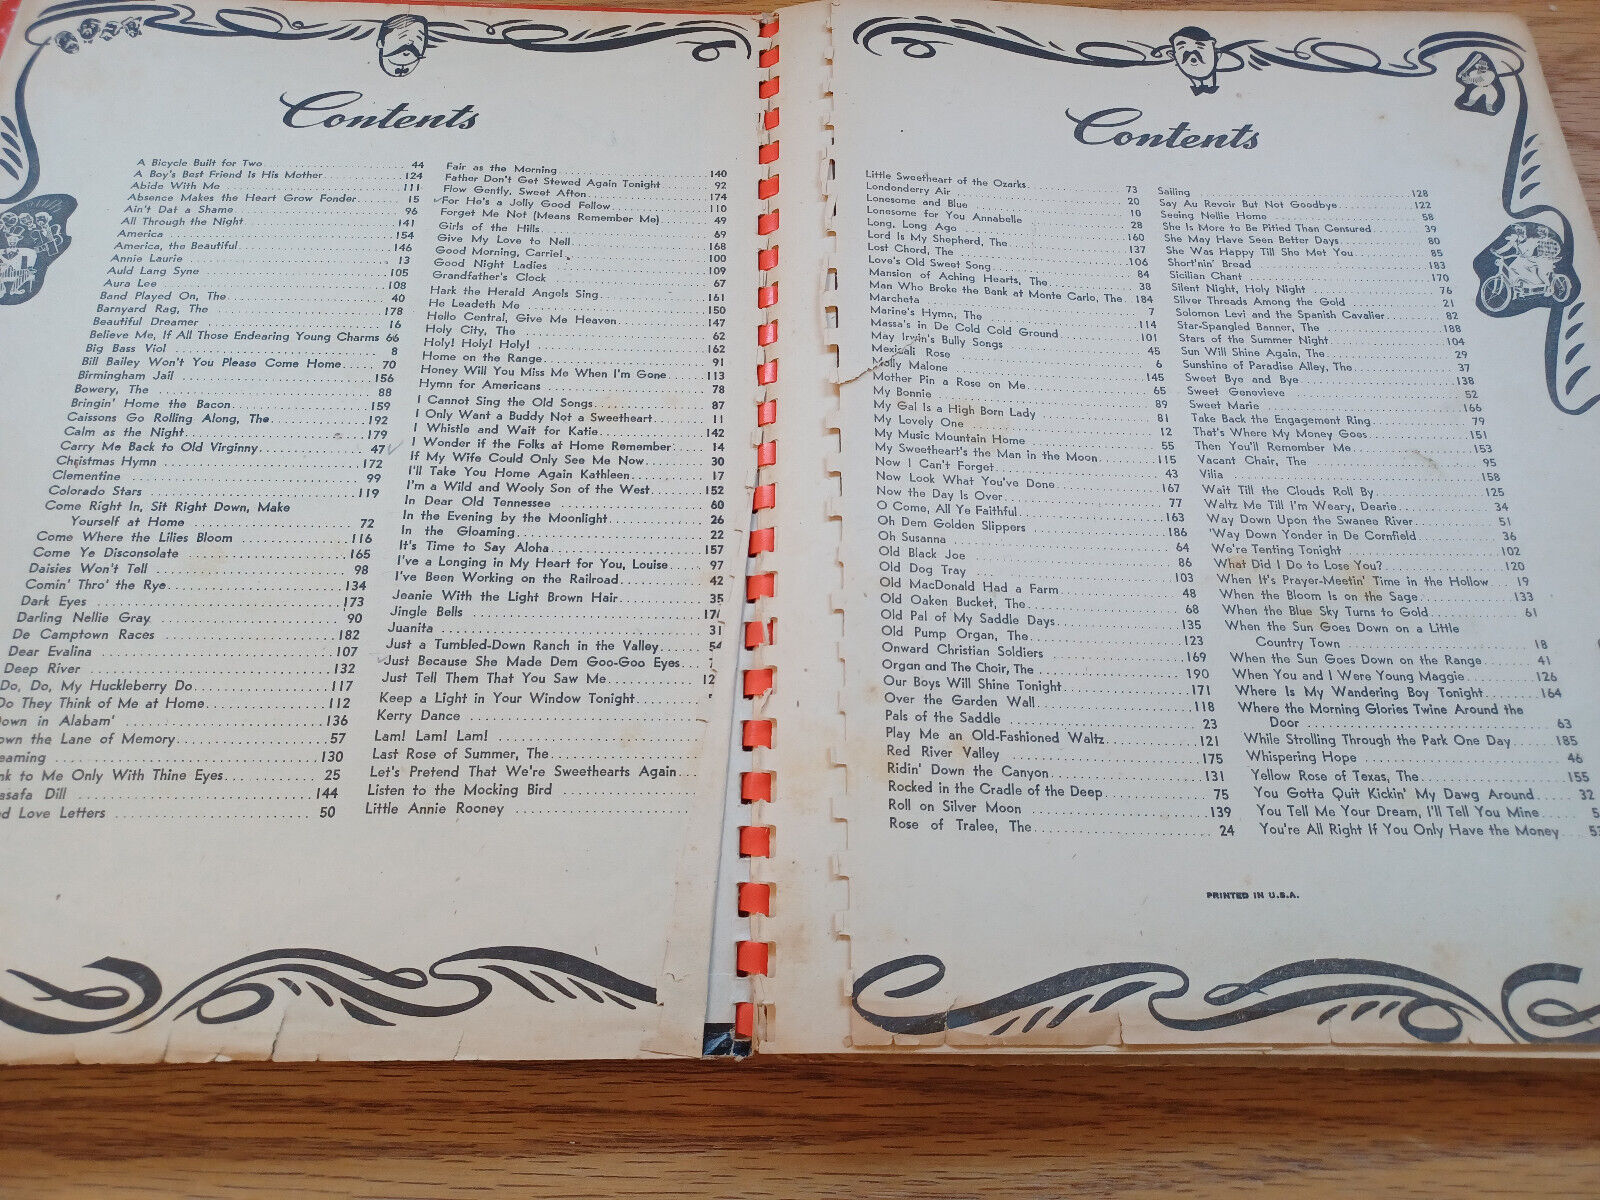 Contents
A Bicycle Built for Two 44
A Boy's Best Friend Is His Mother 124
Abide With Me 111
Absence Makes the Heart Grow Fonder 15
Ain't Dat a Shame 96
All Through the Night 141
America 154
America, the Beautiful 146
Annie Laurie 13
Auld Lang Syne 105
Aura Lee 108
Band Played On, The 40
Barnyard Rag, The 178
Beautiful Dreamer 16
Believe Me, If All Those Endearing Young Charms 66
Big Bass Viol 8
Bill Bailey Won't You Please Come Home 70
Birmingham Jail 156
Bowery, The 88
Bringin' Home the Bacon 159
Caissons Go Rolling Along, The 192
Calm as the Night 179
Carry Me Back to Old Virginny 47
Christmas Hymn 172
Clementine 99
Colorado Stars 119
Come Right In, Sit Right Down, Make
Yourself at Home 72
Come Where the Lilies Bloom 116
Come Ye Disconsolate 165
Daisies Won't Tell 98
Comin' Thro' the Rye 134
Dark Eyes 173
Darling Nellie Gray 90
De Camptown Races 182
Dear Evalina 107
Deep River 132
Do, Do, My Huckleberry Do 117
Do They Think of Me at Home 112
own in Alabam' 136
own the Lane of Memory 57
eaming 130
nk to Me Only With Thine Eyes 25
asafa Dill 144
d Love Letters 50
Fair as the Morning 140
Father Don't Get Stewed Again Tonight 92
Flow Gently, Sweet Afton 174
For He's a Jolly Good Fellow 110
Forget Me Not (Means Remember Me) 49
Girls of the Hills 69
Give My Love to Nell 168
Good Morning, Carrie! 100
Good Night Ladies 109
Grandfather's Clock 67
Hark the Herald Angels Sing 161
He Leadeth Me 150
Hello Central, Give Me Heaven 147
Holy City, The 62
Holy! Holy! Holy! 162
Home on the Range 91
Honey Will You Miss Me When I'm Gone 113
Hymn for Americans 78
I Cannot Sing the Old Songs 87
I Only Want a Buddy Not a Sweetheart 11
I Whistle and Wait for Katie 142
I Wonder if the Folks at Home Remember 14
If My Wife Could Only See Me Now 30
I'll Take You Home Again Kathleen 17
I'm a Wild and Wooly Son of the West 152
In Dear Old Tennessee 60
In the Evening by the Moonlight 26
In the Gloaming 22
It's Time to Say Aloha 157
I've a Longing in My Heart for You, Louise 97
I've Been Working on the Railroad 42
Jeanie With the Light Brown Hair 35
Jingle Bells
Juanita 31
Just a Tumbled-Down Ranch in the Valley 54
Just Because She Made Dem Goo-Goo Eyes
Just Tell Them That You Saw Me 12
Keep a Light in Your Window Tonight
Kerry Dance
Lam! Lam! Lam!
Last Rose of Summer, The
Let's Pretend That We're Sweethearts Again
Listen to the Mocking Bird
Little Annie Rooney
Contents
Little Sweetheart of the Ozarks 73
Londonderry Air 20
Lonesome and Blue 10
Lonesome for You Annabelle 28
Long, Long Ago 160
Lord Is My Shepherd, The 137
Lost Chord, The 106
Love's Old Sweet Song 84
Mansion of Aching Hearts, The 38
Man Who Broke the Bank at Monte Carlo, The 184
Marcheta 7
Marine's Hymn, The 114
Massa's in De Cold Cold Ground 101
May Irwin's Bully Songs 45
Mexicali Rose 6
Molly Malone 145
Mother Pin a Rose on Me 65
My Bonnie 89
My Gal Is a High Born Lady 81
My Lovely One 12
My Music Mountain Home 55
My Sweetheart's the Man in the Moon 115
Now I Can't Forget 43
Now Look What You've Done 167
Now the Day Is Over 77
O Come, All Ye Faithful 163
Oh Dem Golden Slippers 186
Oh Susanna 64
Old Black Joe 86
Old Dog Tray 103
Old MacDonald Had a Farm 48
Old Oaken Bucket, The 68
Old Pal of My Saddle Days 135
Old Pump Organ, The 123
Onward Christian Soldiers 169
Organ and The Choir, The 190
Our Boys Will Shine Tonight 171
Over the Garden Wall 118
Pals of the Saddle 23
Play Me an Old-Fashioned Waltz 121
Red River Valley 175
Ridin' Down the Canyon 131
Rocked in the Cradle of the Deep 75
Roll on Silver Moon 139
Rose of Tralee, The 24
Sailing 128
Say Au Revoir But Not Goodbye 122
Seeing Nellie Home 58
She Is More to Be Pitied Than Censured 39
She May Have Seen Better Days 80
She Was Happy Till She Met You 85
Short'nin' Bread 183
Sicilian Chant 170
Silent Night, Holy Night 76
Silver Threads Among the Gold 21
Solomon Levi and the Spanish Cavalier 82
Star-Spangled Banner, The 188
Stars of the Summer Night 104
Sun Will Shine Again, The 29
Sunshine of Paradise Alley, The 37
Sweet Bye and Bye 138
Sweet Genevieve 52
Sweet Marie 166
Take Back the Engagement Ring 79
That's Where My Money Goes 151
Then You'll Remember Me 153
Vacant Chair, The 95
Vilia 158
Wait Till the Clouds Roll By 125
Waltz Me Till I'm Weary, Dearie 34
Way Down Upon the Swanee River 51
'Way Down Yonder in De Cornfield 36
We're Tenting Tonight 102
What Did I Do to Lose You? 120
When It's Prayer-Meetin' Time in the Hollow 19
When the Bloom Is on the Sage 133
When the Blue Sky Turns to Gold 61
When the Sun Goes Down on a Little
Country Town 18
When the Sun Goes Down on the Range 41
When You and I Were Young Maggie 126
Where Is My Wandering Boy Tonight 164
Where the Morning Glories Twine Around the
Door 63
While Strolling Through the Park One Day 185
Whispering Hope 46
Yellow Rose of Texas, The 155
You Gotta Quit Kickin' My Dawg Around 32
You Tell Me Your Dream, I'll Tell You Mine 5
You're All Right If You Only Have the Money 53
PRINTED IN U.S.A.